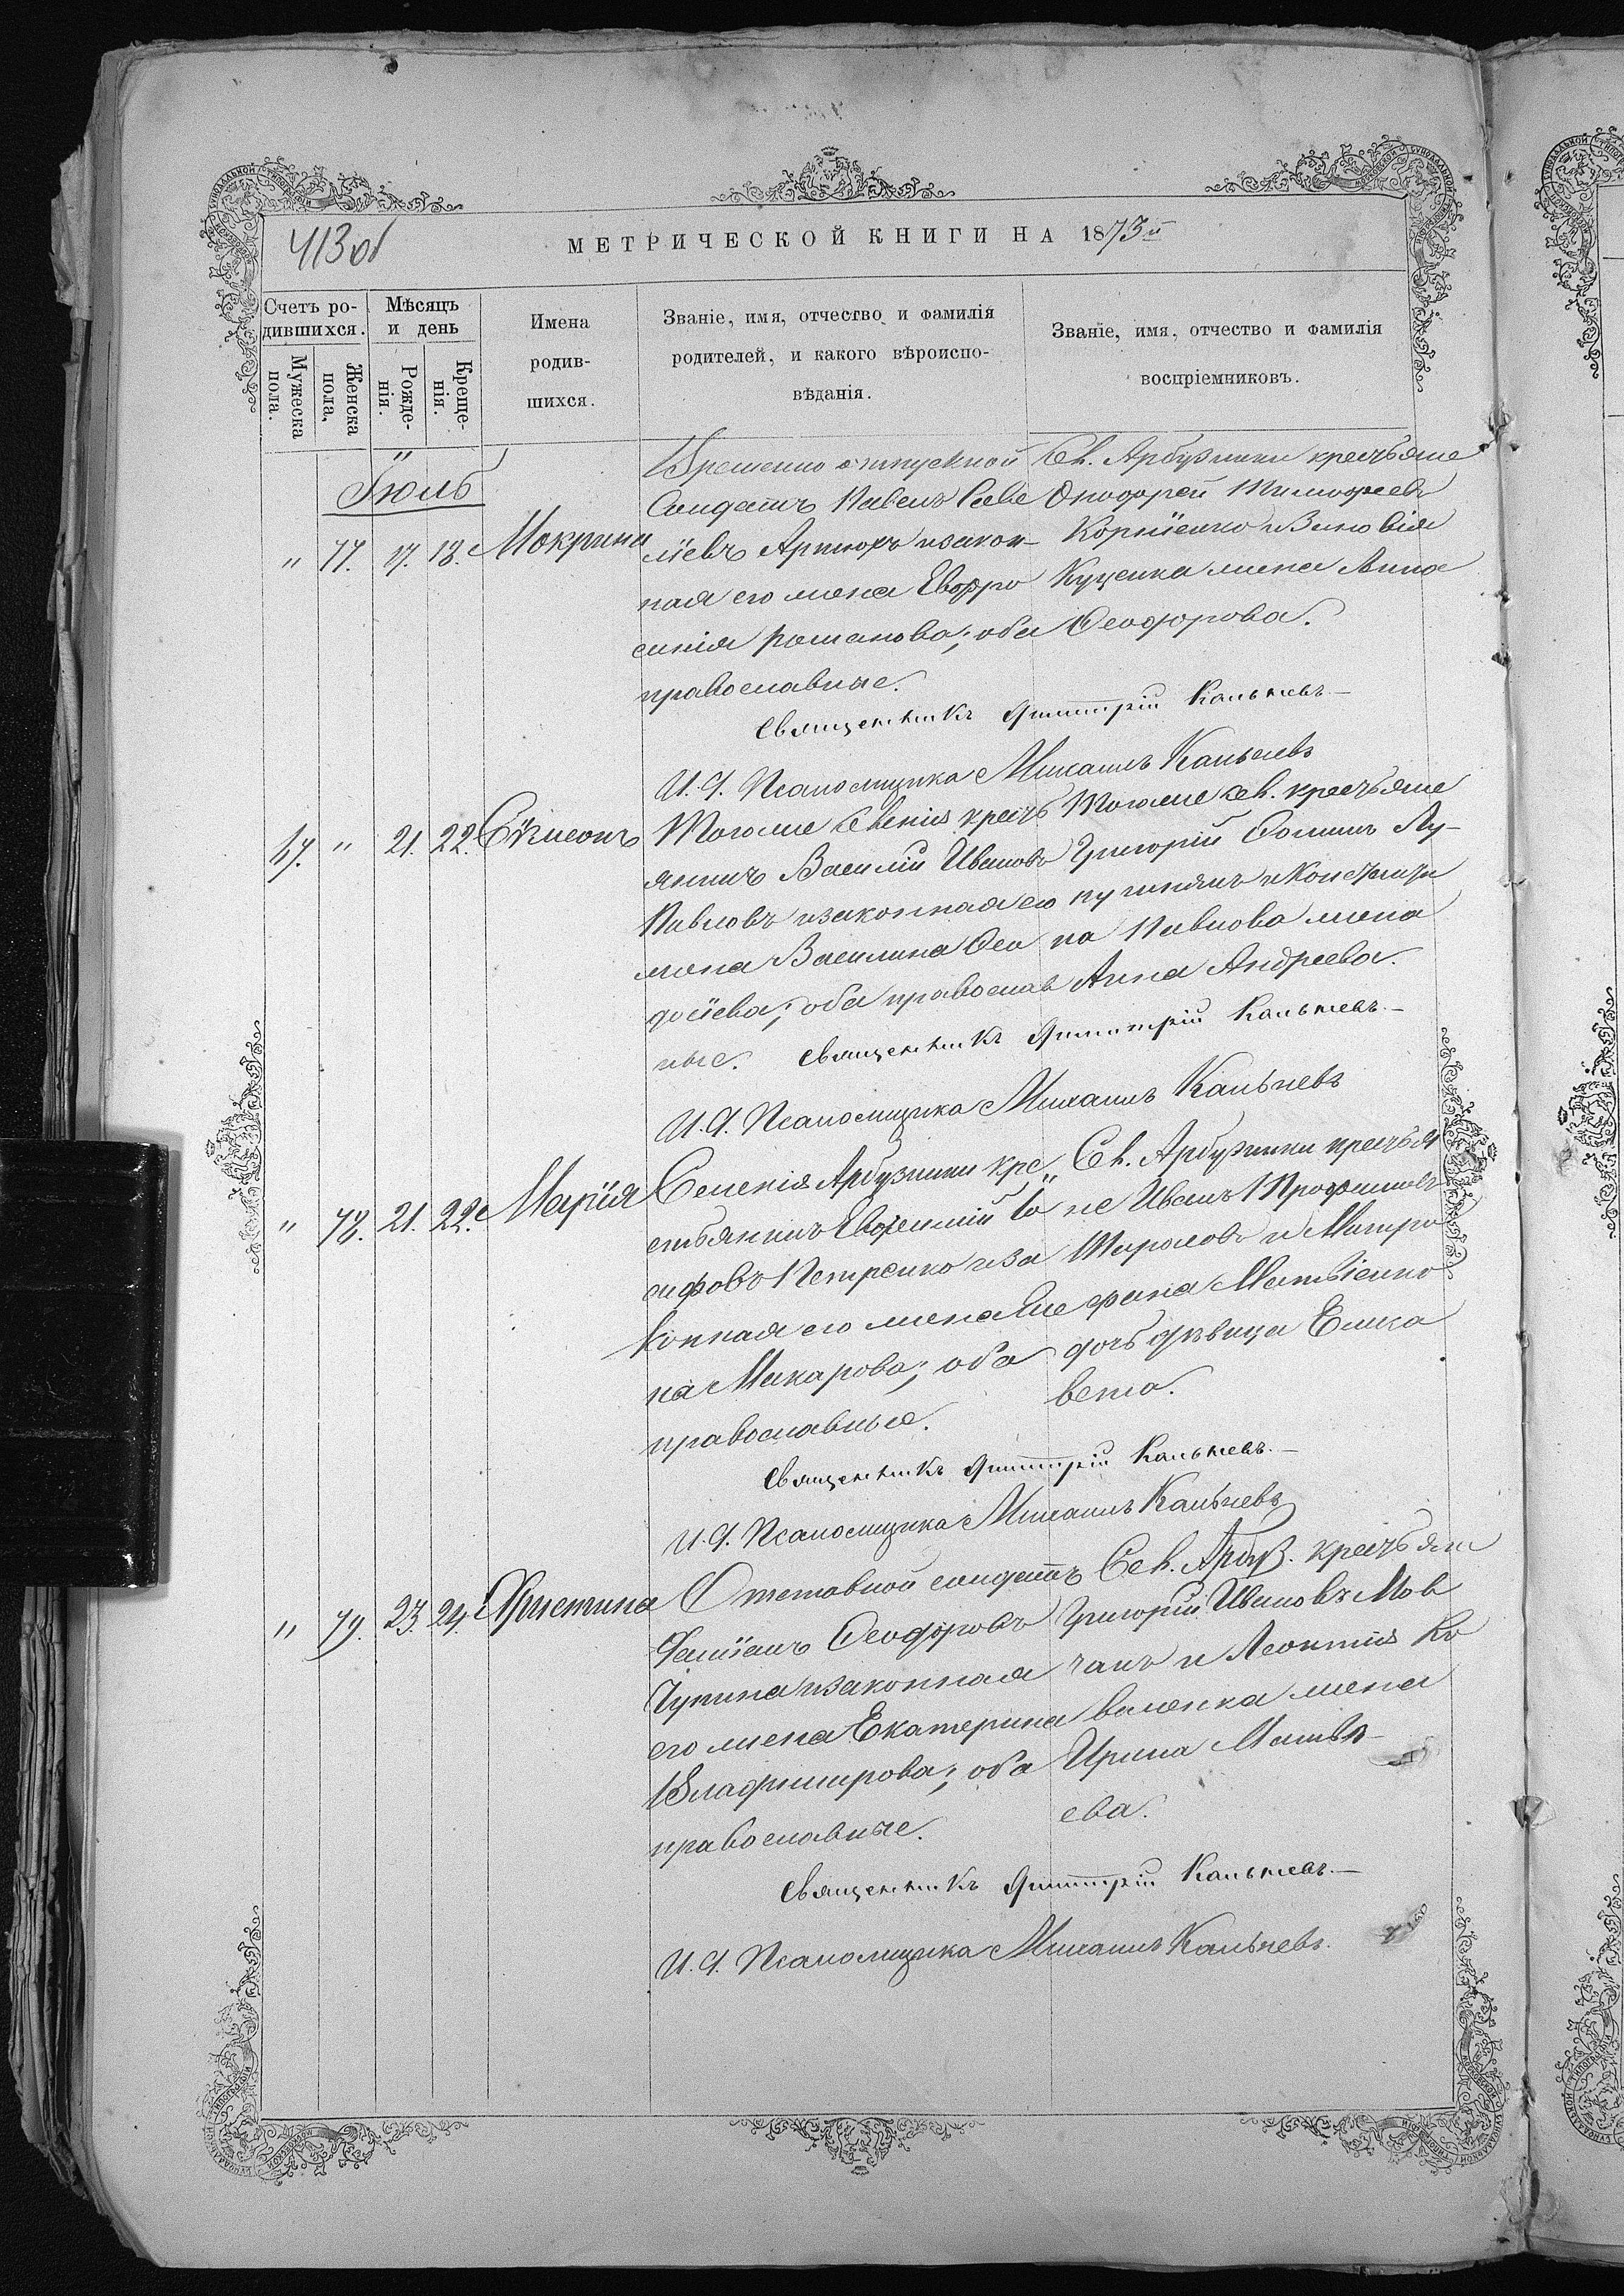 413об
МЕТРИЧЕСКОЙ КНИГИ НА 1873й
Счетъ ро-
дившихся.
Мужеска
пола.
Женска
пола.
Мѣсяцъ
и день
Рожде-
нія.
Креще-
нія.
Имена
родив-
шихся.
Званіе, имя, отчество и фамилія
родителей, и какого вѣроиспо-
вѣданія.
Званіе, имя, отчество и фамилія
воспріемниковъ.
Іюль
" 77. 17. 18. Мокрина
Временно отпускной
Солдатъ Павелъ Саве
ліевъ Артюхъ и закон-
ная его жена Евфро
синія Романова; оба
православные.
Сел. Арбузинки крестьяне
Онофрей Тимофеевъ
Корніенко и Зиновія
Куценка жена Анна
Феодорова.
Священникъ Димитрій Кальневъ.—
И. Д. Псаломщика Михаилъ Кальневъ
47. " 21. 22. Сѵмеонъ
Тогоже селенія крест
янинъ Василій Ивановъ
Павловъ и законная его
жена Василина Фео
досіева; оба православ
ные.
Тогоже сел. крестьяне
Григорій Фоминъ Лу-
пу и Константи
на Павлова жена
Анна Андреева.
Священникъ Димитрій Кальневъ.—
И. Д. Псаломщика Михаилъ Кальневъ
" 78. 21. 22. Марія
Селенія Арбузинки кре„
стьянинъ Евфимій Іо
сифовъ Петренко и за
конная его жена Еле
на Макарова; оба
православные.
Сел. Арбузинки крестья
не Иванъ Трофимовъ
и Митро
фана Матвіенко
дочь дѣвица Елиса
вета.
Священникъ Димитрій Кальневъ.—
И. Д. Псаломщика Михаилъ Кальневъ
" 79. 23. 24. Христина
Отставной солдатъ
Даміанъ Феодоровъ
Чупина и законная
его жена Екатерина
Владимирова; оба
православные.
Сел. Арбуз. крестьяне
Григорій Ивановъ Мов
чанъ и Леонтія Ко
валенка жена
Ирина Матвѣ-
ева.
Священникъ Димитрій Кальневъ.—
И. Д. Псаломщика Михаилъ Кальневъ.